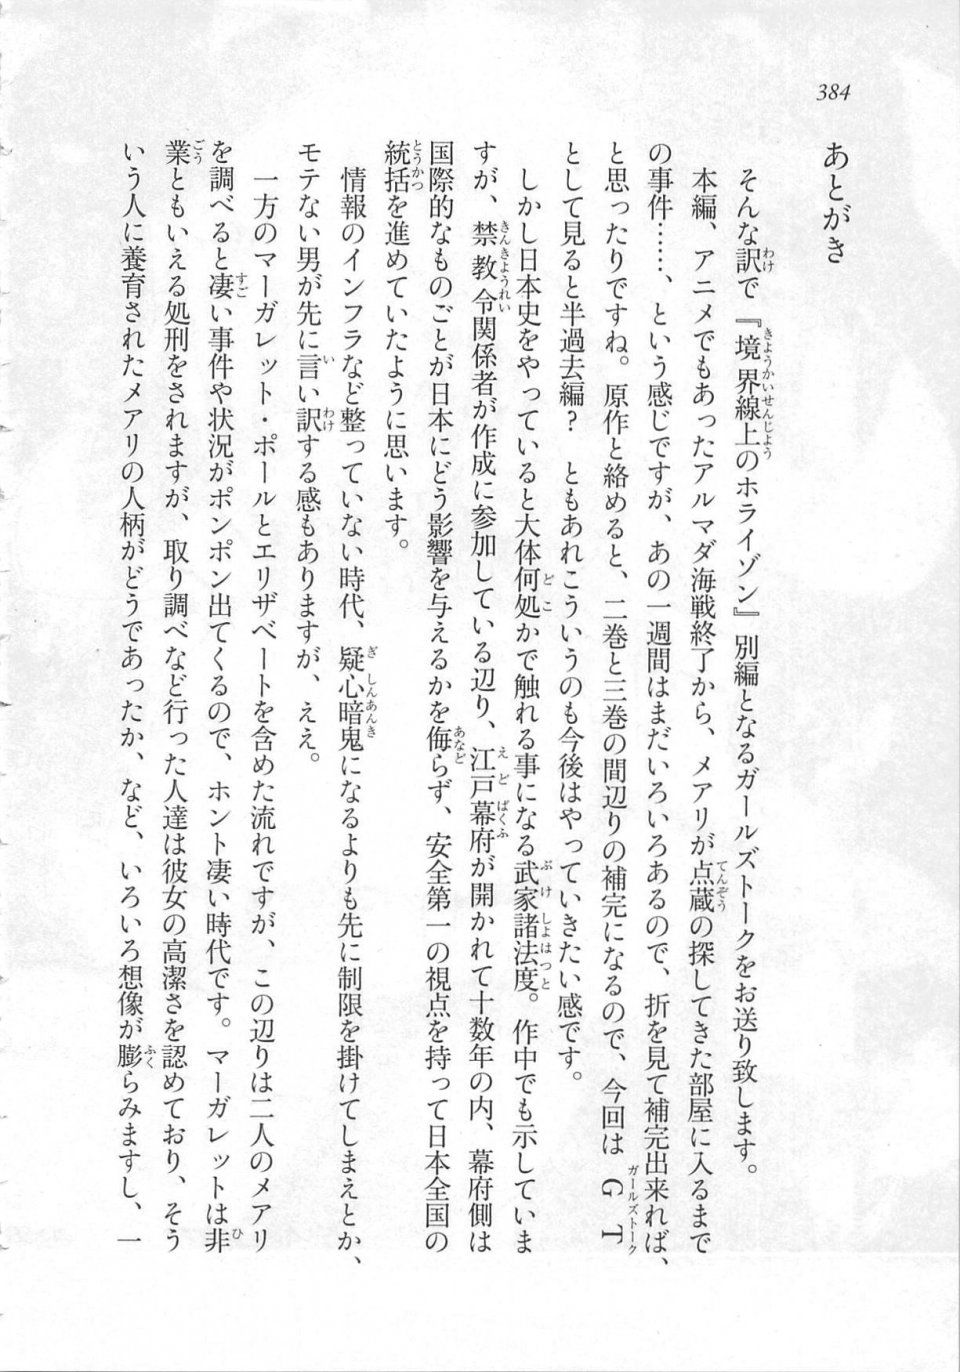 384
あとがき
そんな訳で『境界線上のホライゾン』別編となるガールズトークをお送り致します。
本編、アニメでもあったアルマダ海戦終了から、メアリが点蔵の探してきた部屋に入るまで
の事件……、という感じですが、あの一週間はまだいろいろあるので、折を見て補完出来れば、
と思ったりですね。原作と絡めると、二巻と三巻の間辺りの補完になるので、今回はGT
として見ると半過去編？　ともあれこういうのも今後はやっていきたい感です。
しかし日本史をやっていると大体何処かで触れる事になる武家諸法度。作中でも示していま
すが、禁教令関係者が作成に参加している辺り、江戸幕府が開かれて十数年の内、幕府側は
国際的なものごとが日本にどう影響を与えるかを侮らず、安全第一の視点を持って日本全国の
統括を進めていたように思います。
情報のインフラなど整っていない時代、疑心暗鬼になるよりも先に制限を掛けてしまえとか、
モテない男が先に言い訳する感もありますが、ええ。
一方のマーガレット・ポールとエリザベートを含めた流れですが、この辺りは二人のメアリ
を調べると凄い事件や状況がポンポン出てくるので、ホント凄い時代です。マーガレットは非
業ともいえる処刑をされますが、取り調べなど行った人達は彼女の高潔さを認めており、そう
いう人に養育されたメアリの人柄がどうであったか、など、いろいろ想像が膨らみますし、一